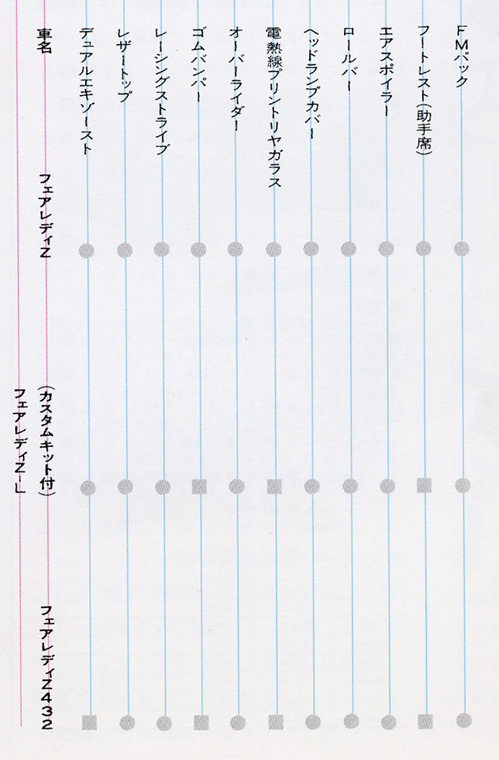 FMパック
フートレスト(助手席)
エアスポイラー
ロールバー
ヘッドランプカバー
電熱線プリントリヤガラス
オーバーライダー
ゴムバンパー
レーシングストライプ
レザートップ
デュアルエキゾースト
車名
フェアレディZ
(カスタムキット付)
フェアレディZ-L
フェアレディZ432